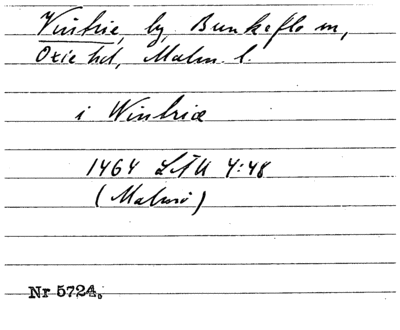 Vintrie, by, Bunkeflo sn,
Oxie hd, Malm. l.
i Wintriæ
1464 LÄU 4:48
(Malmö)
Nr 5724.